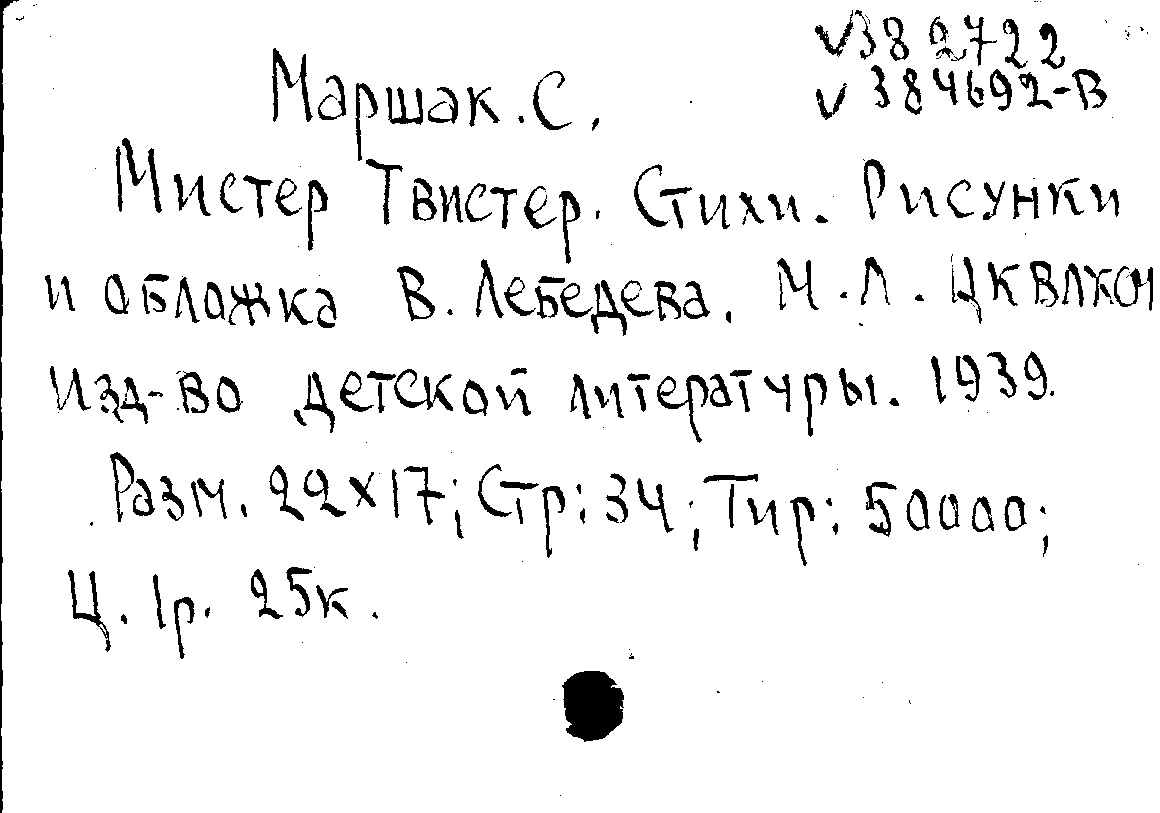 √382722
Маршак. С.
√384692-В
Мистер Твистер. Стихи. Рисунки
и обложка В. Лебедева. М.Л. ЦКВЛКСМ
Изд-во детской литературы. 1939.
Разм. 22х17; Стр: 34; Тир: 50000;
Ц. 1р. 25к.